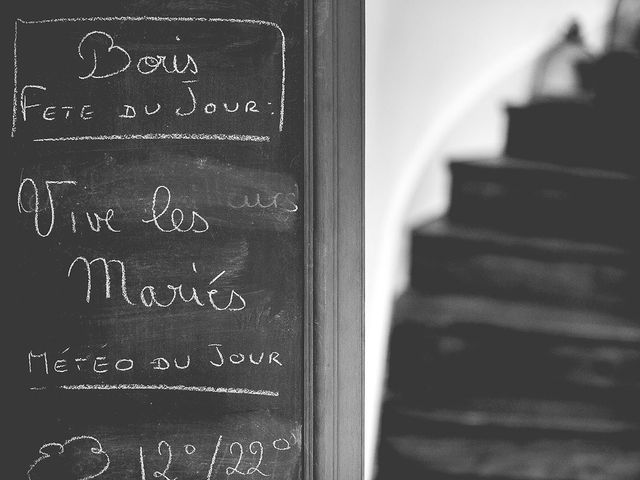 Boris
FETE DU JOUR:
Vive les
Mariés
MÉTÉO DU JOUR
12°/22°